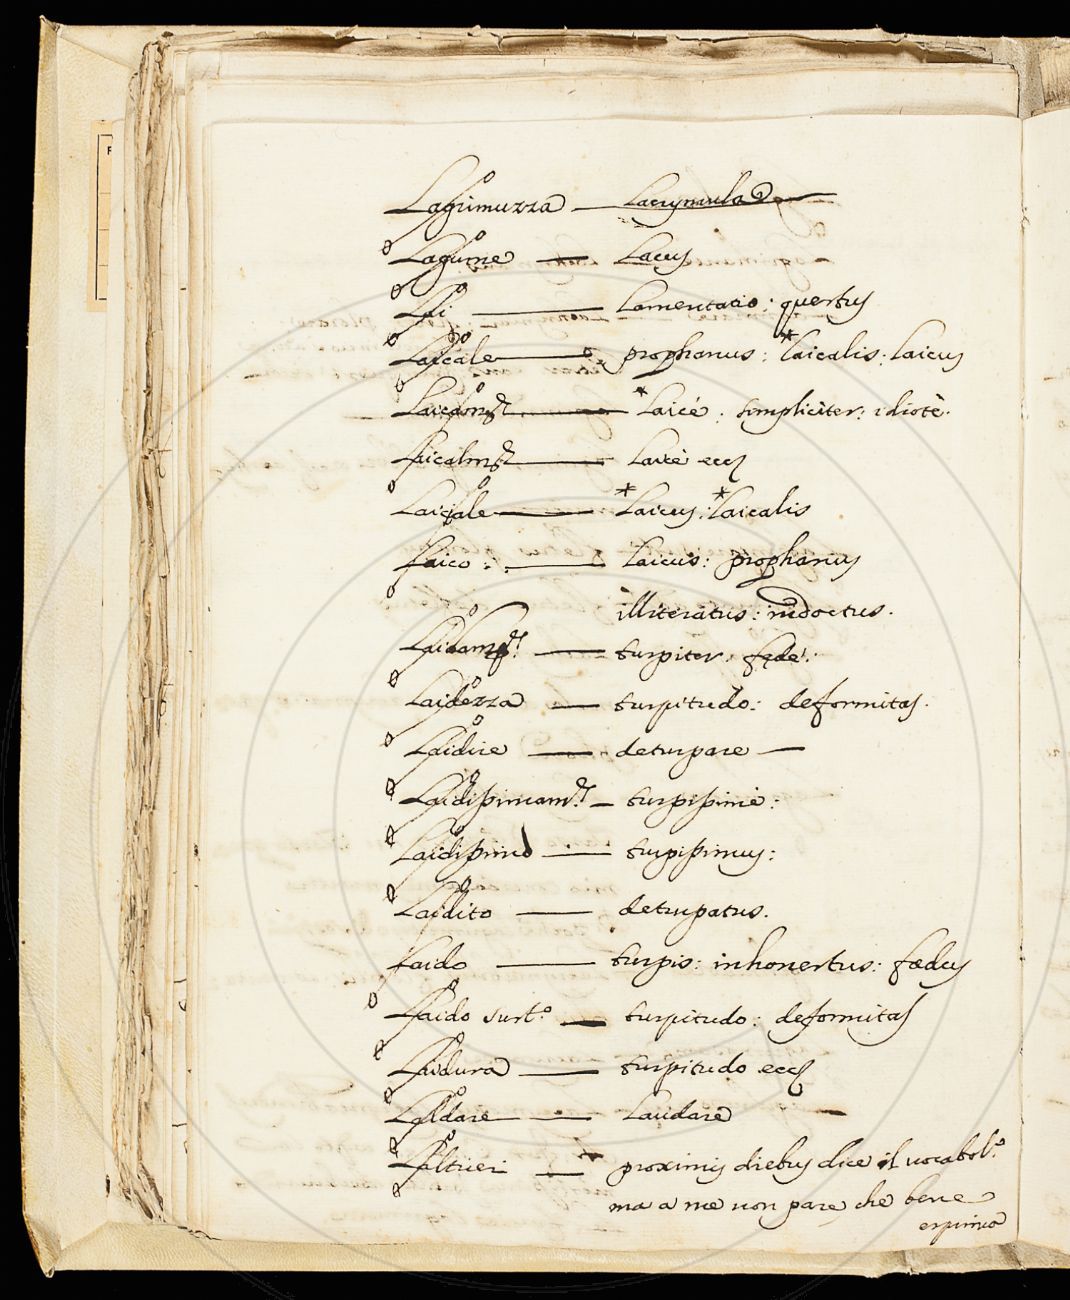 Lagrimuzza — Lacrymula
Lagume — Lacus
Lai — Lamentatio: questus
Laicale — prophanus: *laicalis: laicus
*Laicè: simpliciter: idiotè.
Laicalm.te — Laicè ecc
Laicale — *Laicus: *laicalis
Laico: — Laicus: prophanus
illiteratus: indoctus.
Laidam.te: — turpiter: fędè:
Laidezza — turpitudo: deformitas.
Laidire — deturpare —
Laidißimam.te — turpißimè:
Laidißimo — turpißimus:
Laidito — deturpatus.
Laido — turpis: inhonestus: fœdus
Laido sust.o — turpitudo: deformitas
Laidura — turpitudo ecc
Laldare — Laudare
Laltrieri — proximis diebus dice il uocabol.o
ma a me non pare che bene
esprima